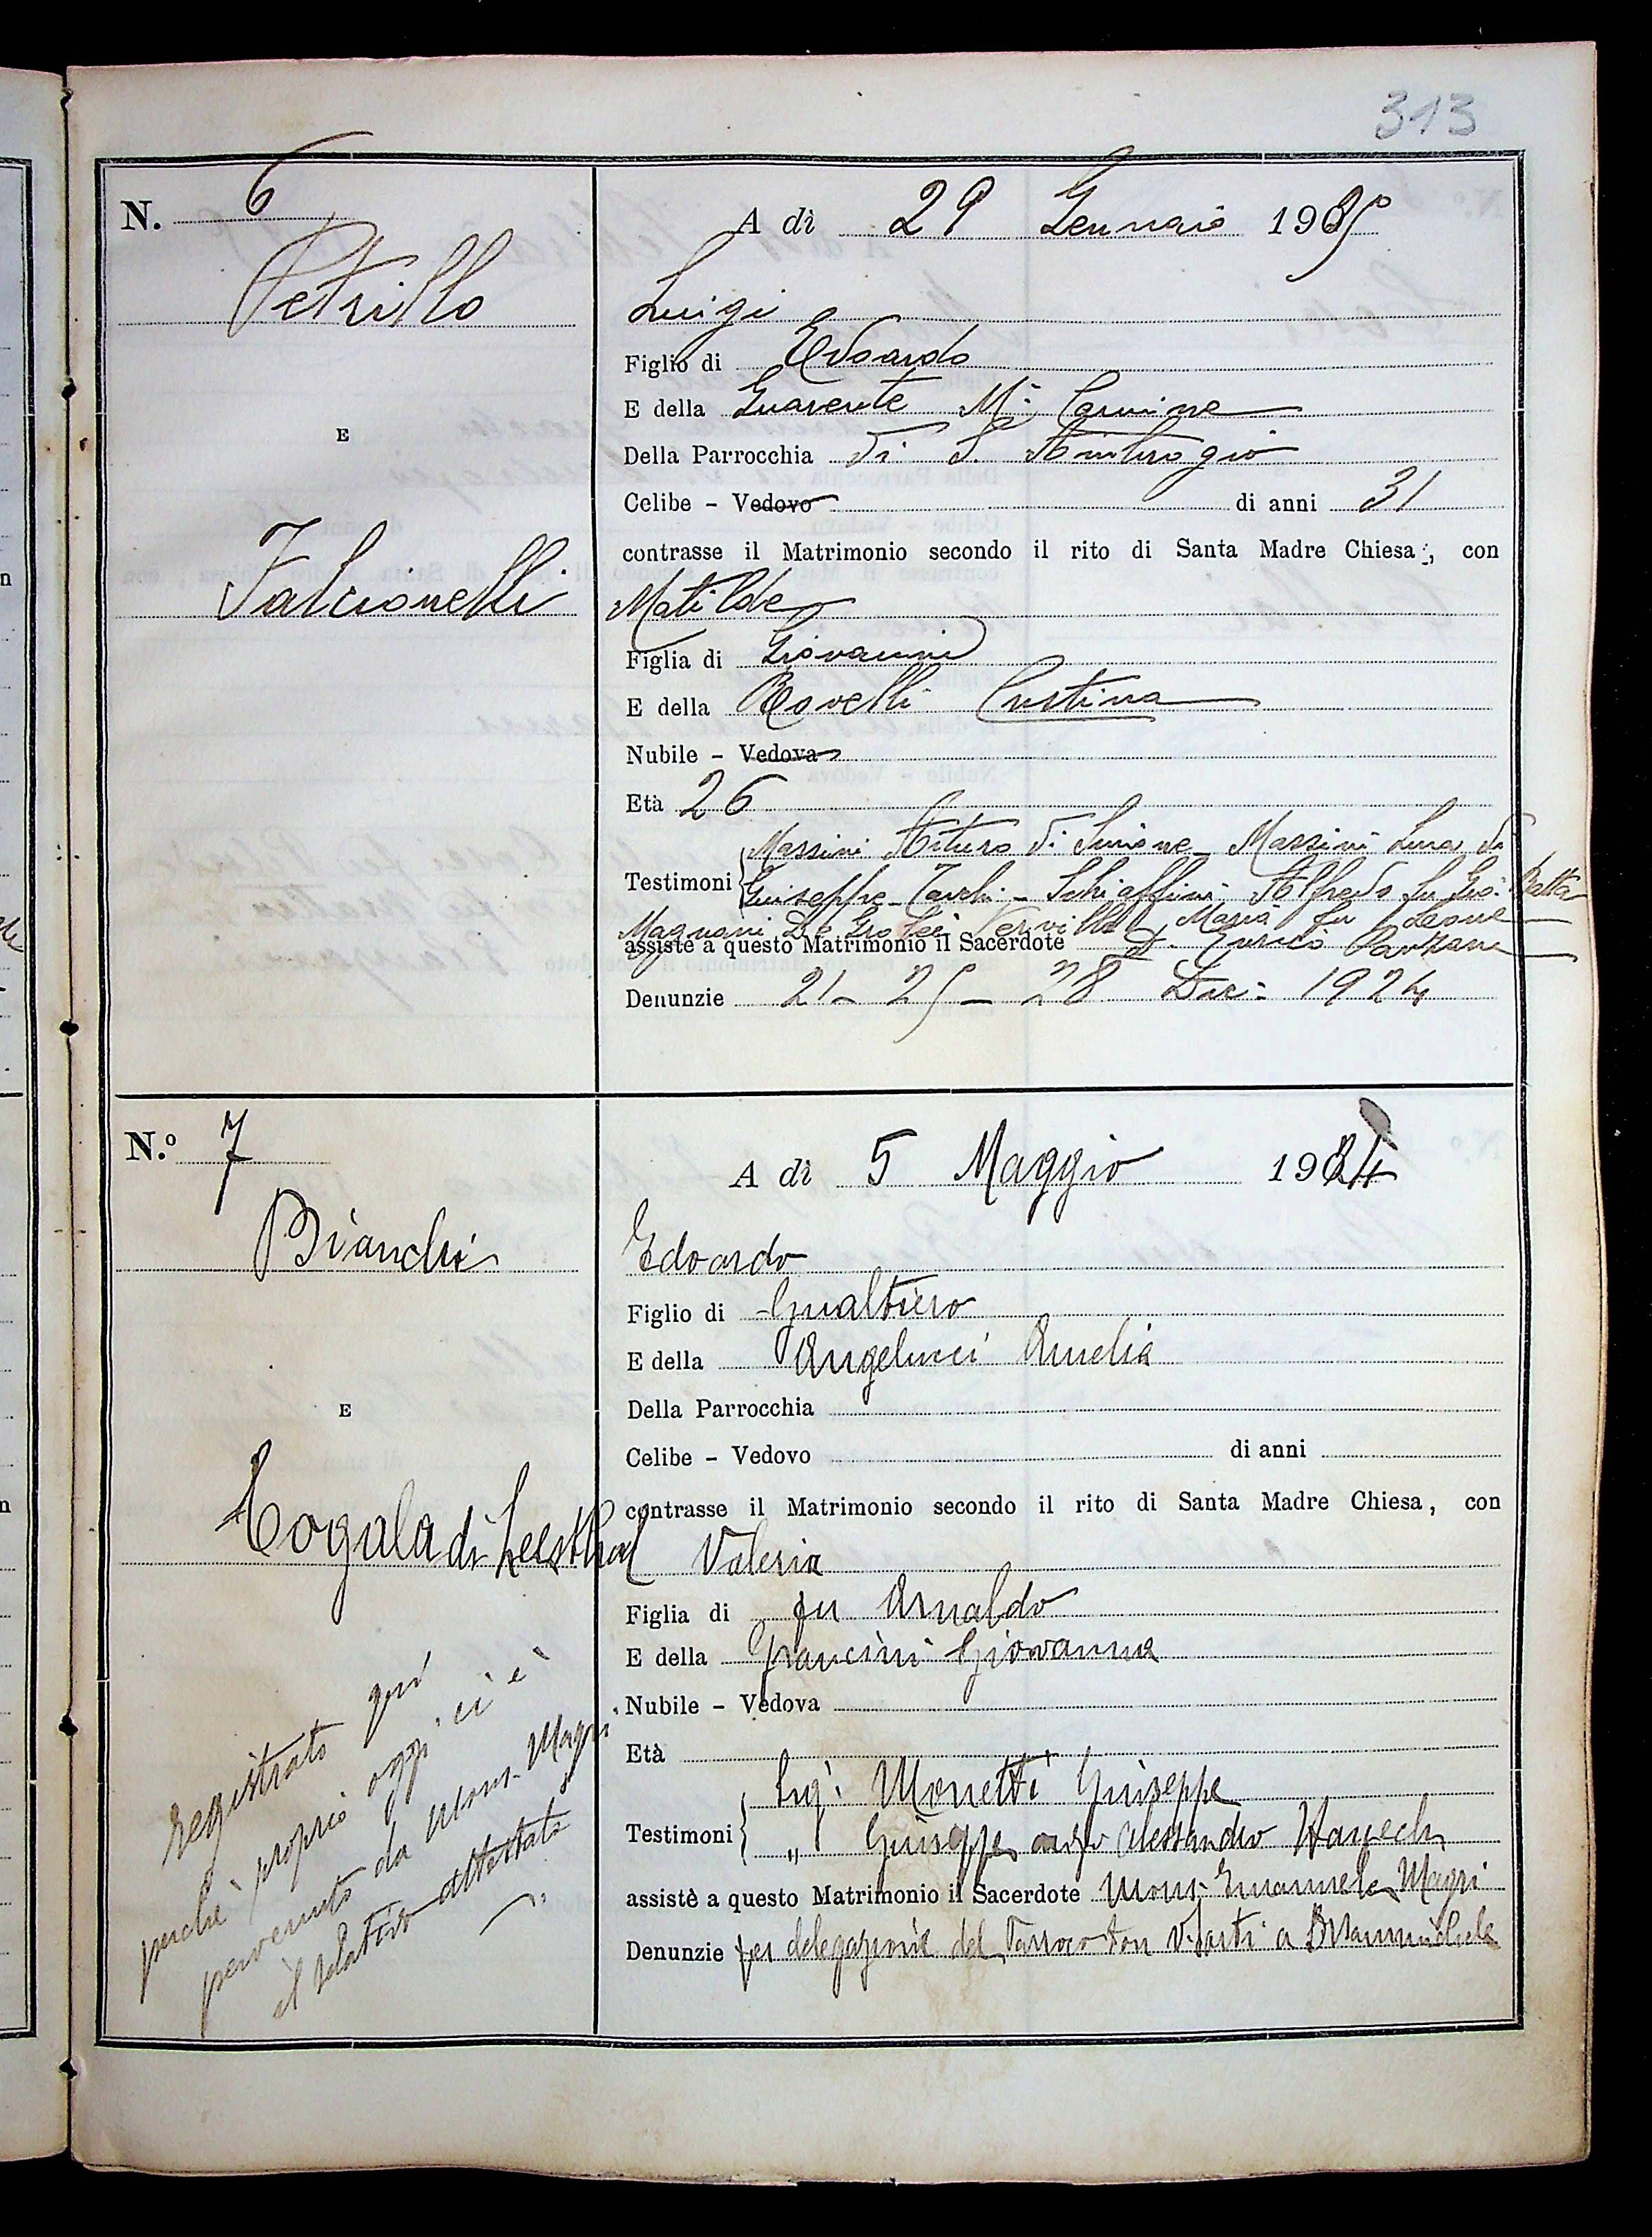 313
N. 6
A dì 29 Gennaio 1925
Petrillo
Luigi
Figlio di Edoardo
E della Guarente Mª Carmine
E
Della Parrocchia di S. Ambrogio
Celibe - Vedovo di anni 31
contrasse il Matrimonio secondo il rito di Santa Madre Chiesa, con
Falcionelli
Matilde
Figlia di Giovanni
E della Rovelli Cristina
Nubile - Vedova
Età 26
Massini Arturo di Simone - Massini Luca di
Testimoni Giuseppe - Schiaffini Alfredo fu Gio: Batta
Magnani Maria fu Leone
assistè a questo Matrimonio il Sacerdote D. Enrico
Denunzie 21 - 25 - 28 Dic: 1924
N.º 7
A dì 5 Maggio 1924
Bianchi
Edoardo
Figlio di Gualtiero
E della Angelucci Amelia
E
Della Parrocchia
Celibe - Vedovo di anni
contrasse il Matrimonio secondo il rito di Santa Madre Chiesa, con
Cogala di Leesthal
Valeria
Figlia di fu Arnaldo
E della Francini Giovanna
Nubile - Vedova
Età
registrato qui
perchè proprio oggi ci è
pervenuto da Mons. Magri
il relativo attestato
Sig: Monetti Giuseppe
Testimoni " Giuseppe Alessandro
assistè a questo Matrimonio il Sacerdote Mons. Emanuele Magri
Denunzie per delegazione del Parroco don a